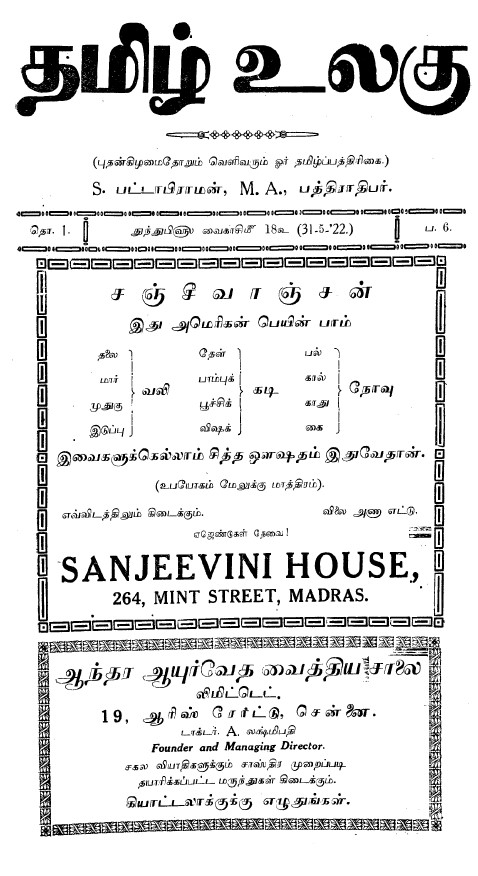 தமிழ் உலகு
(புதன்கிழமைதோறும் வெளிவரும் ஓர் தமிழ்ப்பத்திரிகை.)
S. பட்டாபிராமன், M. A., பத்திராதிபர்.
தொ. 1.
துந்துபிளு வைகாசிமீ 18உ (31-5-'22.)
ப. 6.
சஞ்சீவாஞ்சன்
இது அமெரிகன் பெயின் பாம்
தலை
மார்
முதுகு
இடுப்பு
வலி
தேள்
பாம்புக்
பூச்சிக்
விஷக்
கடி
பல்
கால்
காது
கை
நோவு
இவைகளுக்கெல்லாம் சித்த ஔஷதம் இதுவேதான்.
(உபயோகம் மேலுக்கு மாத்திரம்).
எவ்விடத்திலும் கிடைக்கும்.
விலை அணா எட்டு.
ஏஜெண்டுகள் தேவை!
SANJEEVINI HOUSE,
264, MINT STREET, MADRAS.
ஆந்தர ஆயுர்வேத வைத்திய சாலை
லிமிட்டெட்.
19, ஆரிஸ் ரோட்டு, சென்னை.
டாக்டர். A. லக்ஷ்மிபதி
Founder and Managing Director.
சகல வியாதிகளுக்கும் சாஸ்திர முறைப்படி
தயாரிக்கப்பட்ட மருந்துகள் கிடைக்கும்.
கியாட்டலாக்குக்கு எழுதுங்கள்.